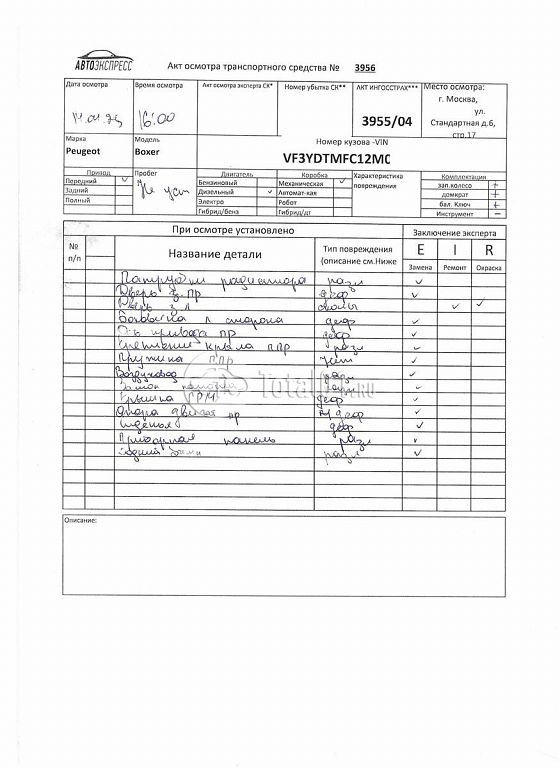 АВТОЭКСПРЕСС
Акт осмотра транспортного средства № 3956
Дата осмотра
Время осмотра
Акт осмотра эксперта СК*
Номер убытка СК**
АКТ ИНГОССТРАХ***
Место осмотра:
16:00
3955/04
г. Москва,
ул.
Стандартная д.6,
стр.17
Марка
Модель
Номер кузова -VIN
Peugeot
Boxer
VF3YDTMFC12MC
Привод
Пробег
Двигатель
Коробка
Характеристика повреждения
Комплектация
Передний ✓
Не уст
Бензиновый
Механическая ✓
зап.колесо +
Задний
Дизельный ✓
Автомат-кая
домкрат +
Полный
Электро
Робот
бал. Ключ +
Гибрид/бенз
Гибрид/дт
Инструмент –
При осмотре установлено
Заключение эксперта
№ п/п
Название детали
Тип повреждения
(описание см.Ниже
E I R
Замена
Ремонт
Окраска
Патрубки радиатора разл ✓
Дверь з пр деф ✓
Дверь з л сколы ✓ ✓
Боковина л сторона деф ✓
пр деф ✓
крыла ппр разл ✓
Пружина ппр ✓
Воздуховод разл ✓
Замок ✓
Крышка ГРМ деф ✓
Опора двигат пр деф ✓
Сиденья деф ✓
Приборная панель разл ✓
разл ✓
Total
.RU
Описание: